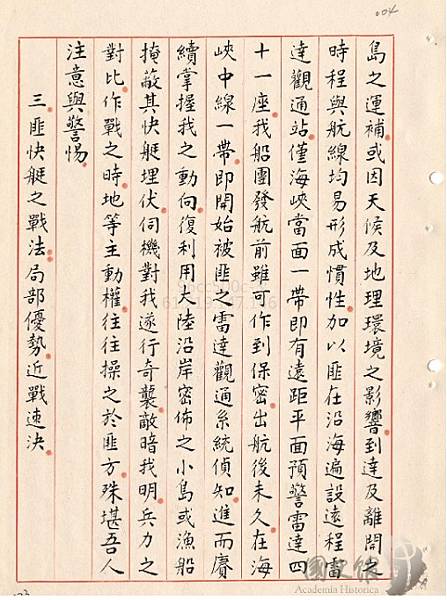 004
島之運補。或因天候及地理環境之影響。到達及離開之
時程與航線均易形成慣性。加以匪在沿海遍設遠程雷
達觀通站。僅海峽當面一帶即有遠距平面預警雷達四
十一座。我船團發航前雖可作到保密。出航後未久。在海
峽中線一帶。即開始被匪之雷達觀通系統偵知。進而賡
續掌握我之動向。復利用大陸沿岸密佈之小島或漁船
掩蔽其快艇埋伏。伺機對我遂行奇襲。敵暗我明。兵力之
對比。作戰之時地等主動權。往往操之於匪方。殊堪吾人
注意與警惕。
三。匪快艇之戰法。局部優勢。近戰速決。
國史館
Academia Historica